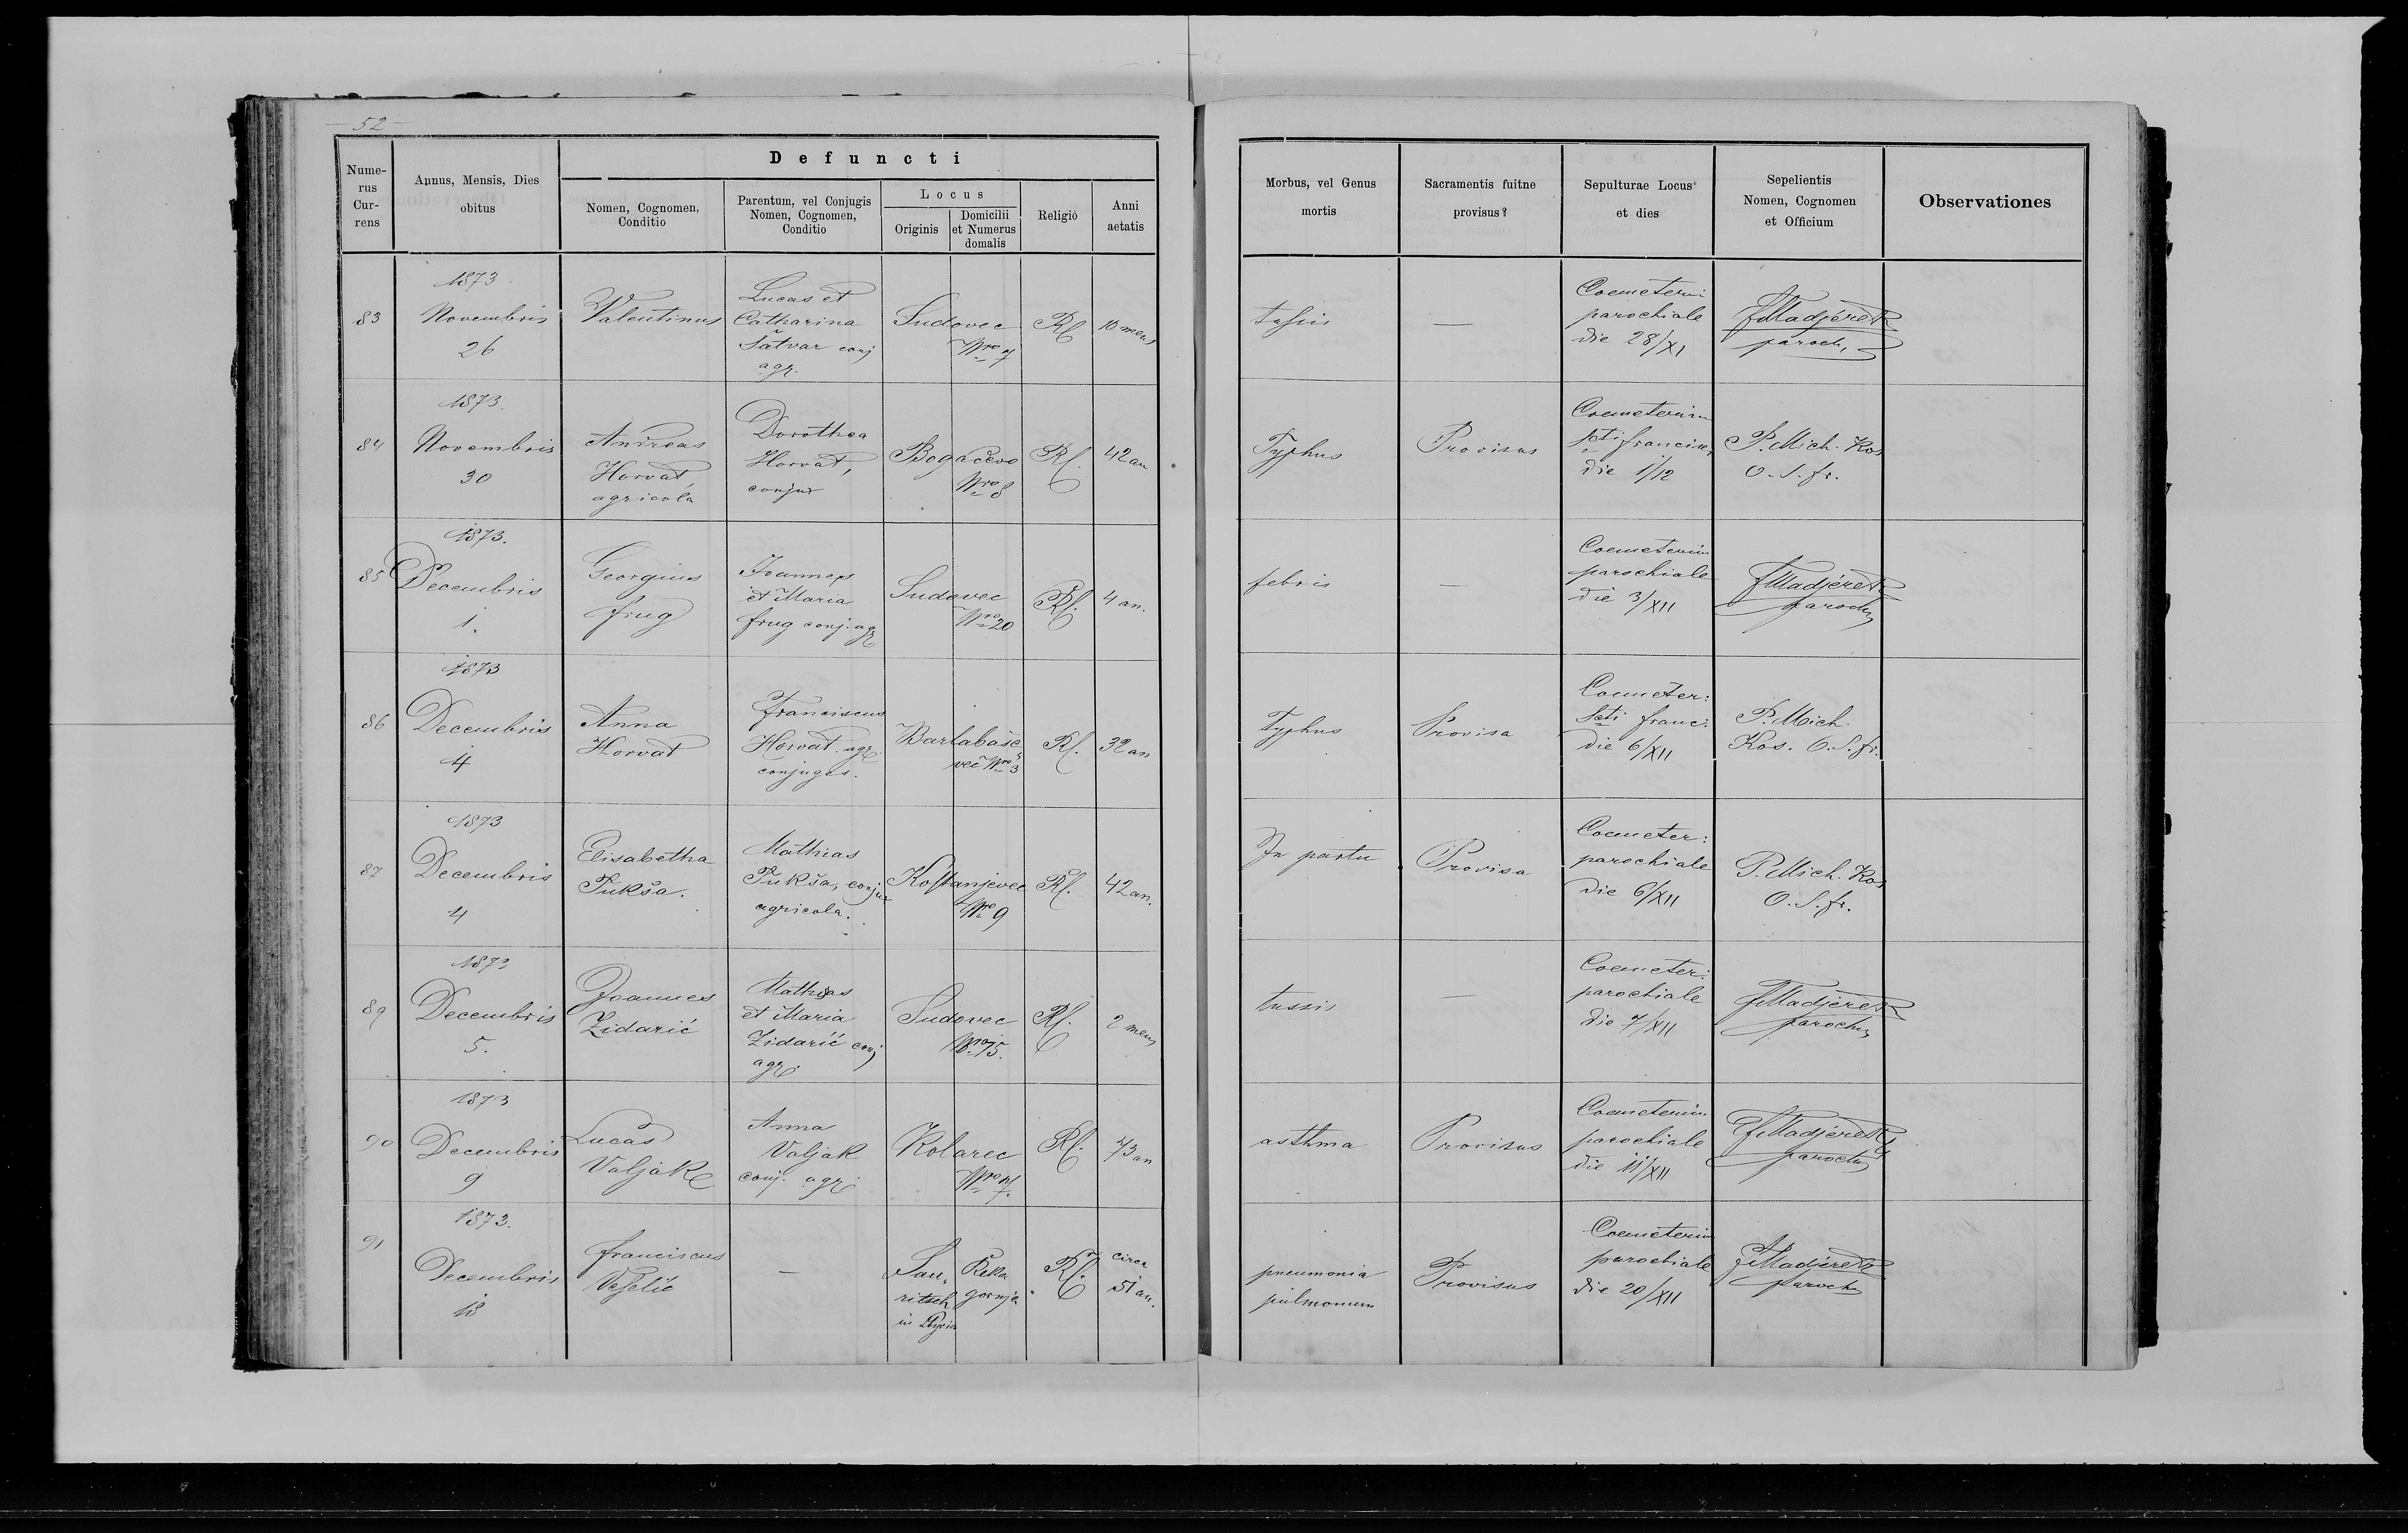 52
Defuncti
Nume-
rus
Cur-
rens
Annus, Mensis, Dies
obitus
Nomen, Cognomen,
Conditio
Parentum, vel Conjugis
Nomen, Cognomen,
Conditio
Locus
Originis
Domicilii
et Numerus
domalis
Religio
Anni
aetatis
Morbus, vel Genus
mortis
Sacramentis fuitne
provisus?
Sepulturae Locus
et dies
Sepelientis
Nomen, Cognomen
et Officium
Observationes
83
1873
Novembris
26
Valentinus
Lucas et
Catharina
Šatvar conj
agr.
Sudovec
Nro 7
Rf
10 mens
tussis
—
Coemeterium
parochiale
die 28/XI
paroch,
84
1873.
Novembris
30
Andreas
Horvat,
agricola
Dorothea
Horvat,
conjux
Bogačevo
Nro 8
Rf.
42 an
Typhus
Provisus
Coemeterium
Scti francisci
die 1/12
P. Mich. Kos
O. S. fr.
85
1873.
Decembris
1.
Georgius
frug
Joannes
et Maria
frug conj. agr
Sudovec
Nro 20
Rf.
4 an.
febris
—
Coemeterium
parochiale
die 3/XII
parochus
86
1873
Decembris
4
Anna
Horvat
Franciscus
Horvat agr
conjuges.
Barlabašec
vec Nro 3
Rf.
32 an
Typhus
Provisa
Coemeter:
Scti franc:
die 6/XII
P. Mich.
Kos. O. S. fr.
87
1873
Decembris
4
Elisabetha
Fukša.
Mathias
Fukša, conjux
agricola.
Kostanjevec
Nro 9
Rf.
42 an.
In partu
Provisa
Coemeter:
parochiale
die 6/XII
P. Mich. Kos
O. S. fr.
89
1873
Decembris
5.
Joannes
Zidarić
Mathias
et Maria
Zidarić conj
agr
Sudovec
Nro 15.
Rf.
2 mens
tussis
—
Coemeter:
parochiale
die 7/XII
parochus
90
1873
Decembris
9
Lucas
Valjak
Anna
Valjak
conj. agr
Kolarec
Nro 7.
Rf.
73 an
asthma
Provisus
Coemeterium
parochiale
die 11/XII
parochus
91
1873.
Decembris
18
franciscus
Veselić
—
Sau-
ritsch
in Styria
Reka
gornja
Rf.
circa
51 an.
pneumonia
pulmonum
Provisus
Coemeterium
parochiale
die 20/XII
paroch